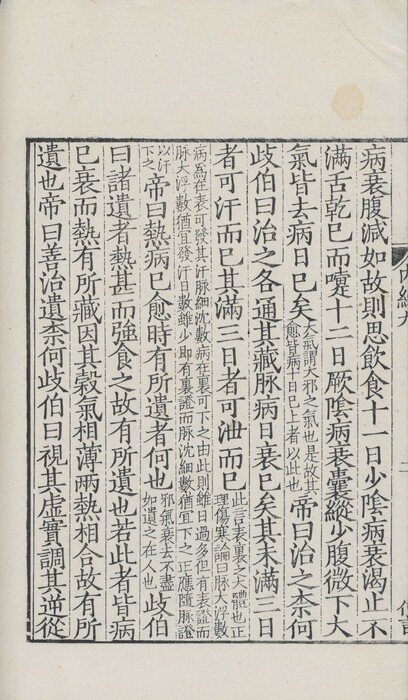 病衰腹減如故則思飲食十一日少陰病衰渴止不
滿舌乾已而嚏十二日厥陰病衰囊縱少腹微下大
氣皆去病日已矣大氣謂大邪之氣也是故其愈皆病十日已上者以此也帝曰治之柰何
歧伯曰治之各通其藏脉病日衰已矣其未滿三日
者可汗而已其滿三日者可泄而已此言表裏之大體也正理傷寒論曰脉大浮數
病爲在表可發其汗脉細沈數病在裏可下之由此則雖日過多但有表證而脉大浮數猶宜發汗日數雖少即有裏證而脉沈細數猶宜下之正應隨脉證
以汗下之帝曰熱病已愈時有所遺者何也邪氣衰去不盡如遺之在人也歧伯
曰諸遺者熱甚而強食之故有所遺也若此者皆病
已衰而熱有所藏因其穀氣相薄兩熱相合故有所
遺也帝曰善治遺柰何歧伯曰視其虛實調其逆從